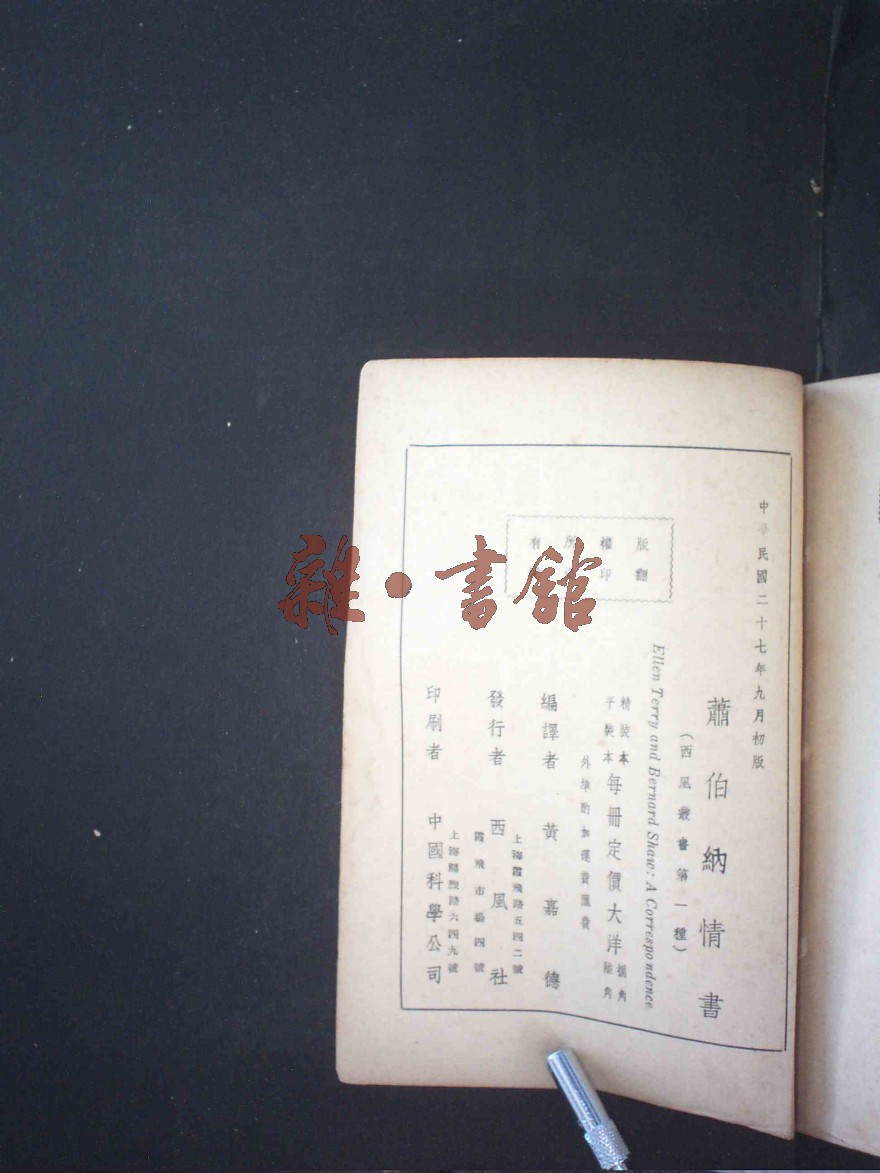 中華民國二十七年九月初版
蕭伯納情書
(西風叢書第一種)
Ellen Terry and Bernard Shaw: A Correspondence
精裝本
平裝本
每冊定價大洋
角
陸角
外埠酌加運費匯費
編譯者 黃嘉德
發行者 西風社
上海霞飛路五四二號
霞飛市場四號
印刷者 中國科學公司
上海福煦路六四九號
版權所有
翻印
雜·書館